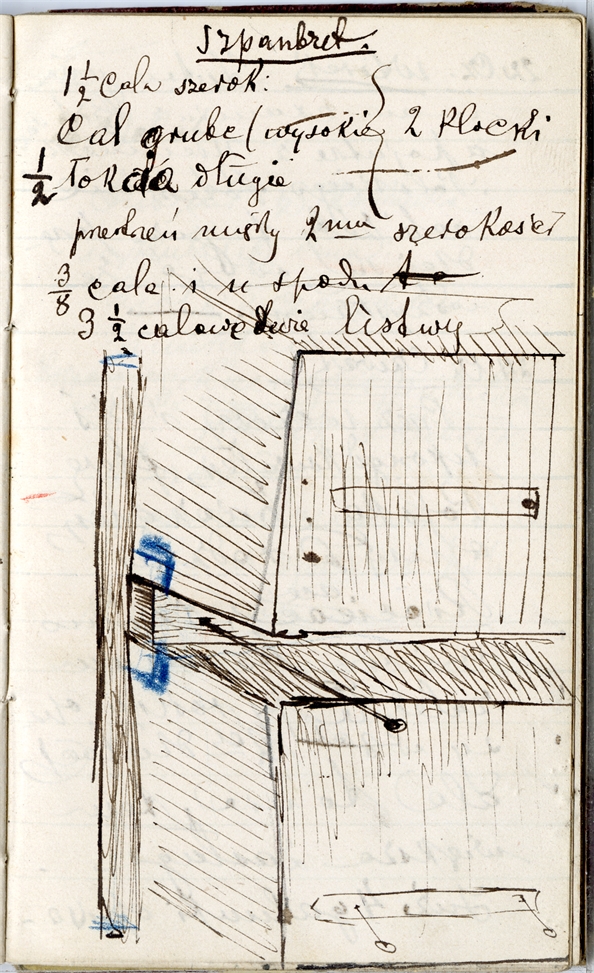 Szpanbret.
1 1/2 Cala szerok:
Cal grube (wysokie) 2 Klocki
1/2 Łokcia długie
przedzeń między 2ma szerokość
3/8 cala i u spodu
3 1/2 calowe dwie listwy